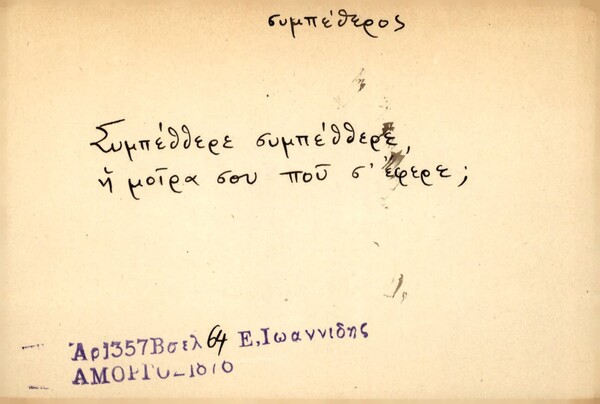 συμπέθερος
Συμπέθθερε συμπέθθερε,
ἡ μοῖρα σου ποῦ σ' ἔφερε;
Ἀρ1357Βσελ 64 Ε,Ιωαννιδης
ΑΜΟΡΓΟΣ1876